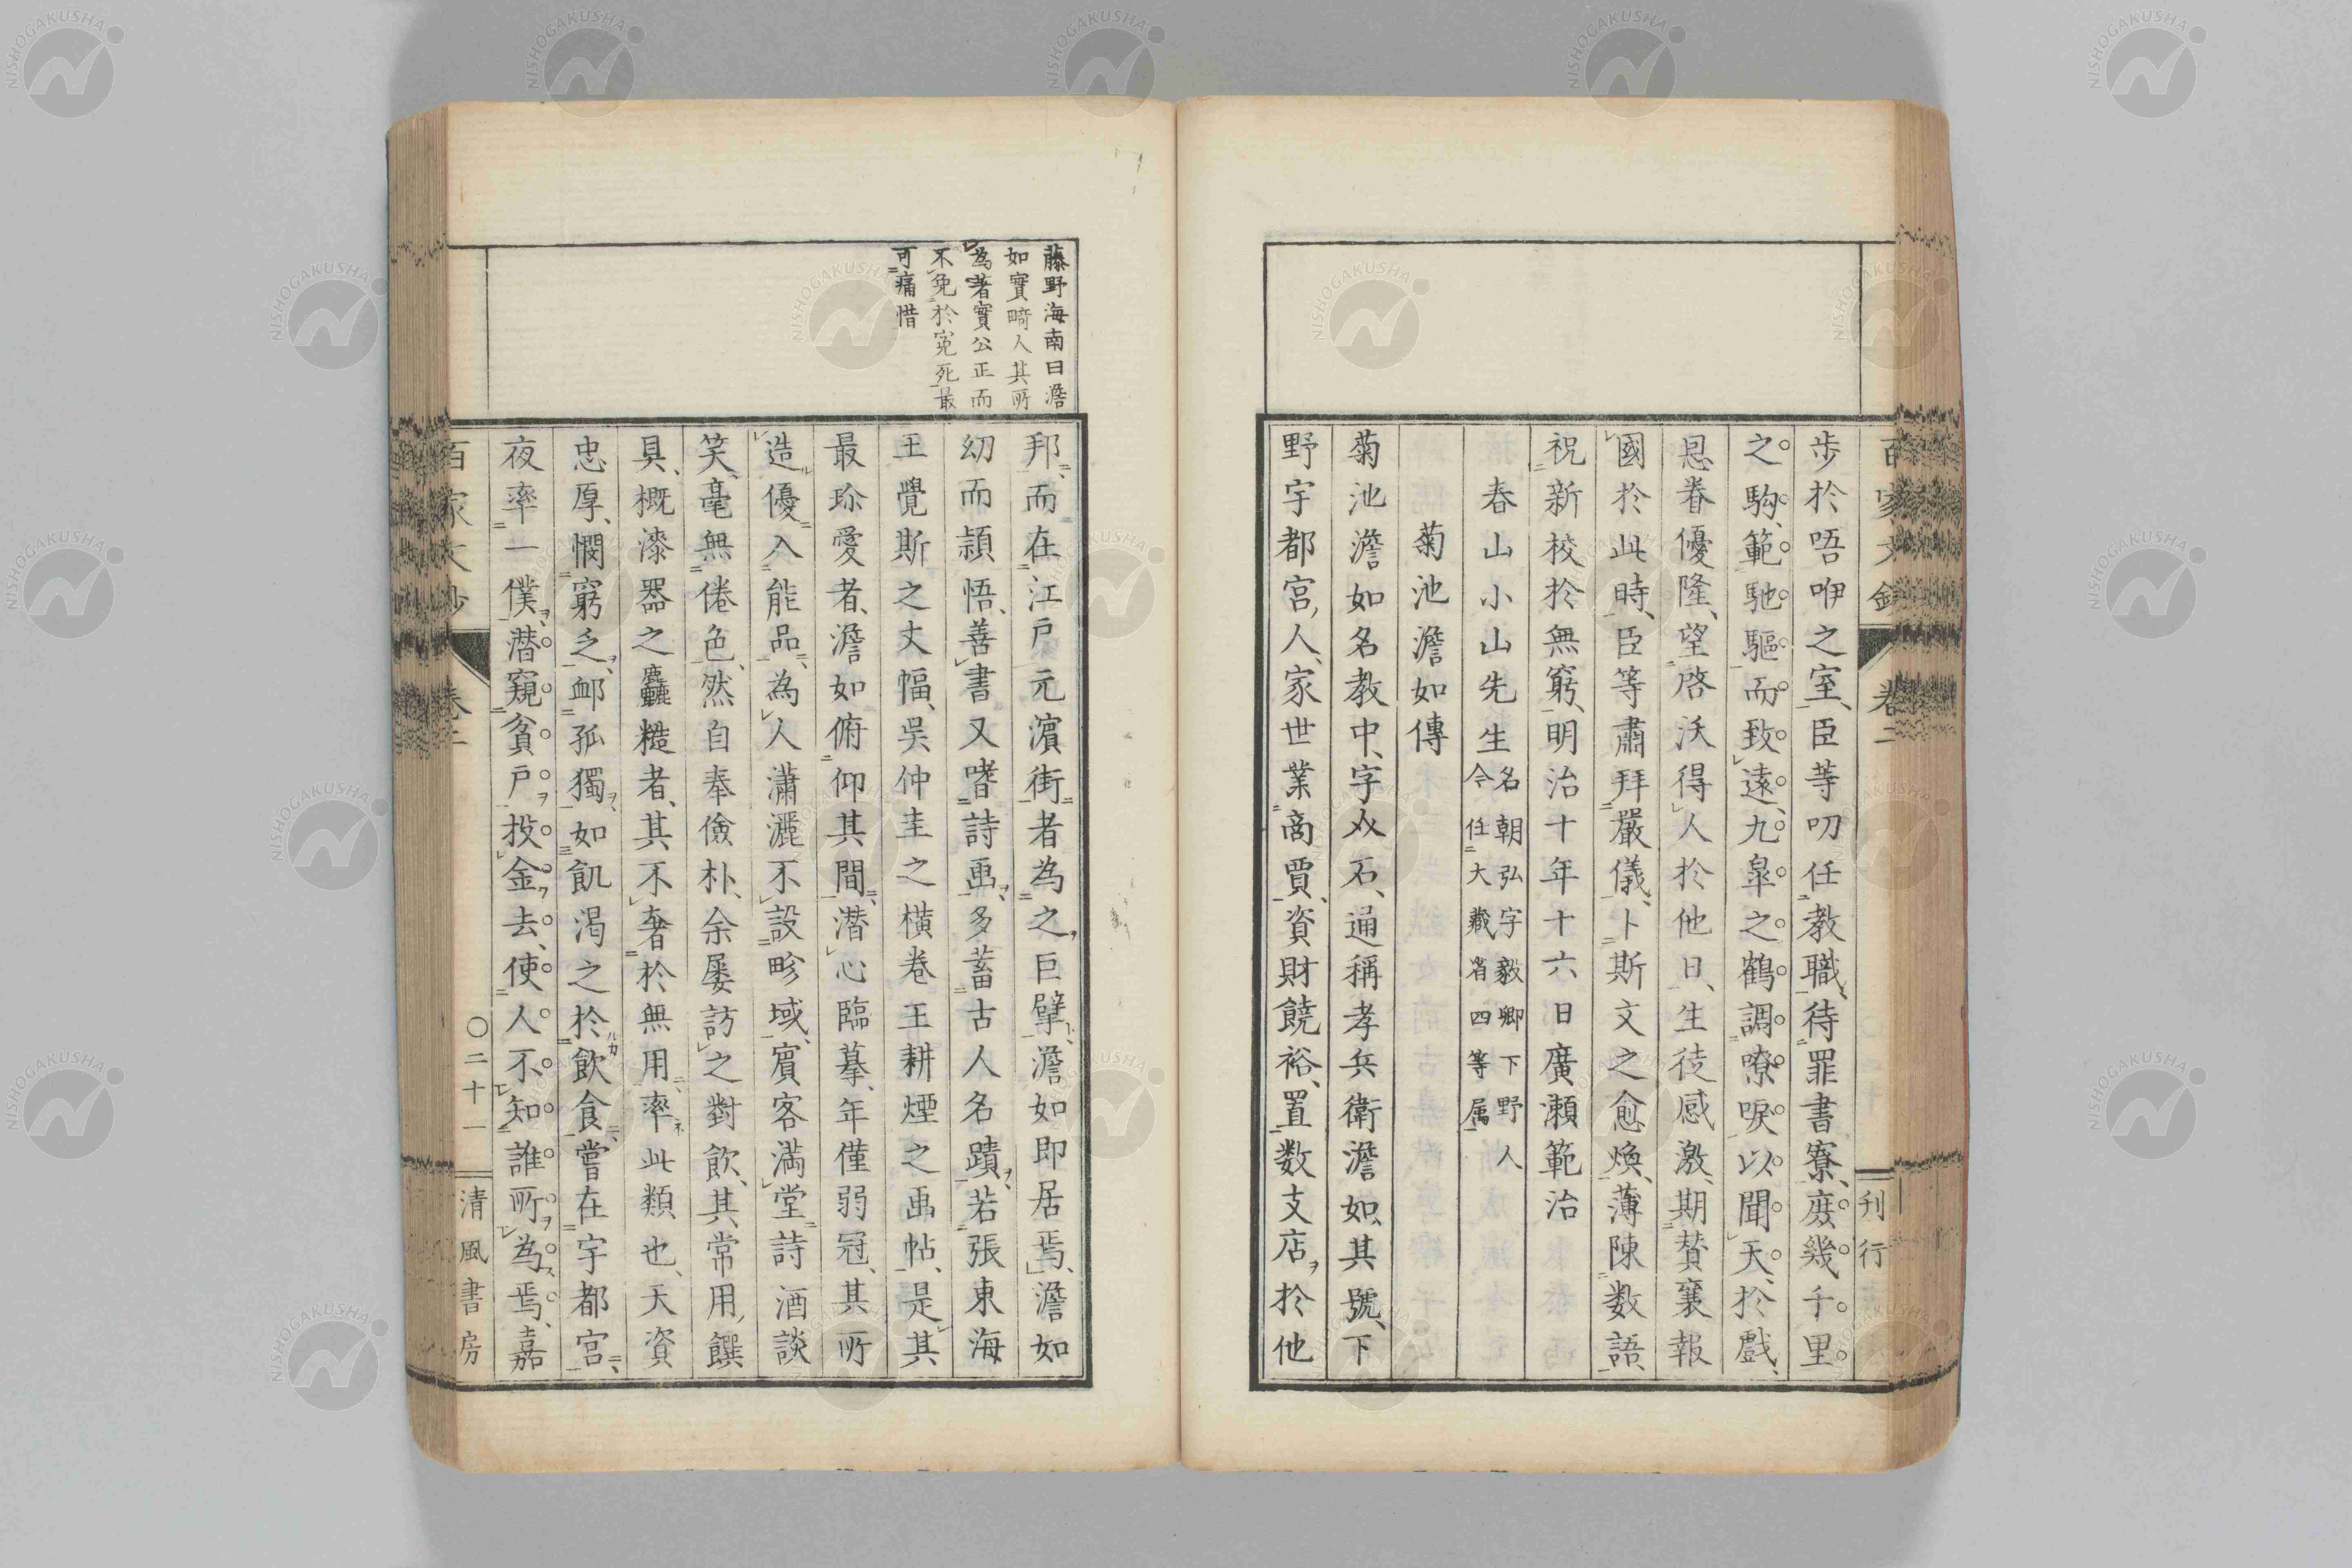 歩於唔咿之室、臣等叨任教職、待罪書寮、庶幾千里
之駒、範馳驅而致遠、九皐之鶴、調嘹唳以聞天、於戲、
恩眷優隆、望啓沃得人於他日、生徒感激、期賛襄報
國於此時、臣等肅拜嚴儀、卜斯文之愈煥、薄陳数語、
祝新校於無窮、明治十年十六日廣瀬範治
春山小山先生 名朝弘字毅卿下野人
今任大藏省四等属
菊池澹如傳
菊池澹如名教中、字介石、通稱孝兵衛澹如、其號、下
野宇都宮人、家世業商賈、資財饒裕、置数支店ヲ於他
百家文鈔
卷二
刊行
藤野海南曰澹
如實畸人其所
為著實公正而
不免於寃死最
可痛惜
邦、而在江戸元濵街者為之巨擘ト、澹如即居焉、澹如
幼而頴悟、善書又嗜詩画ヲ、多蓄古人名蹟ヲ、若張東海
王覺斯之丈幅、吴仲圭之横巻王耕煙之画帖、是其
最珎愛者、澹如俯仰其間、潜心臨摹、年僅弱冠、其所
造ル優入能品、為人瀟灑不設畛域、賓客満堂詩酒談
笑、毫無倦色、然自奉儉朴、余屡訪之對飲、其常用饌
具、概漆器之麤糙者、其不奢於無用、率ネ此類也、天資
忠厚、憫窮乏ヲ、卹孤獨ヲ、如飢渇之於ルカ飲食ニ、嘗在宇都宮、
夜率一僕ヲ、潜窺貧戸ヲ投金ヲ去、使人不知誰所ヲ為ス焉、嘉
百家文鈔
卷二
〇二十一
清風書房